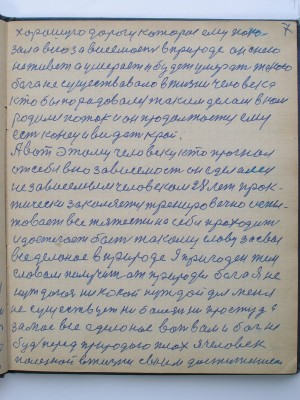 7
хорошую дорогу которая ему пока-
зала в независимость в природе он с него
не живет а умерает и будет умерать такого
бога не существовало в жизни человека
кто бы порадовал таким делам в нем
родилпоток и он продолжает ему
есть конец и видать край.
А вот этому человеку кто прогнал
от себя в независимость он сделался
независемым человеком 28 лет прак-
тически закаляет тренировачно испы-
товает все тяжести на себя проходит
и достегает быть такому слову за свои
все делоное в природе Я пригоден тем
словом получить от природы бога Я не
нуждаюся никокой нуждой для меня
не существует ни болезни простуда
за мое все сделоное вот вам и бог не
буду перед природаю плох я человек
полезный в жизни своим достижением